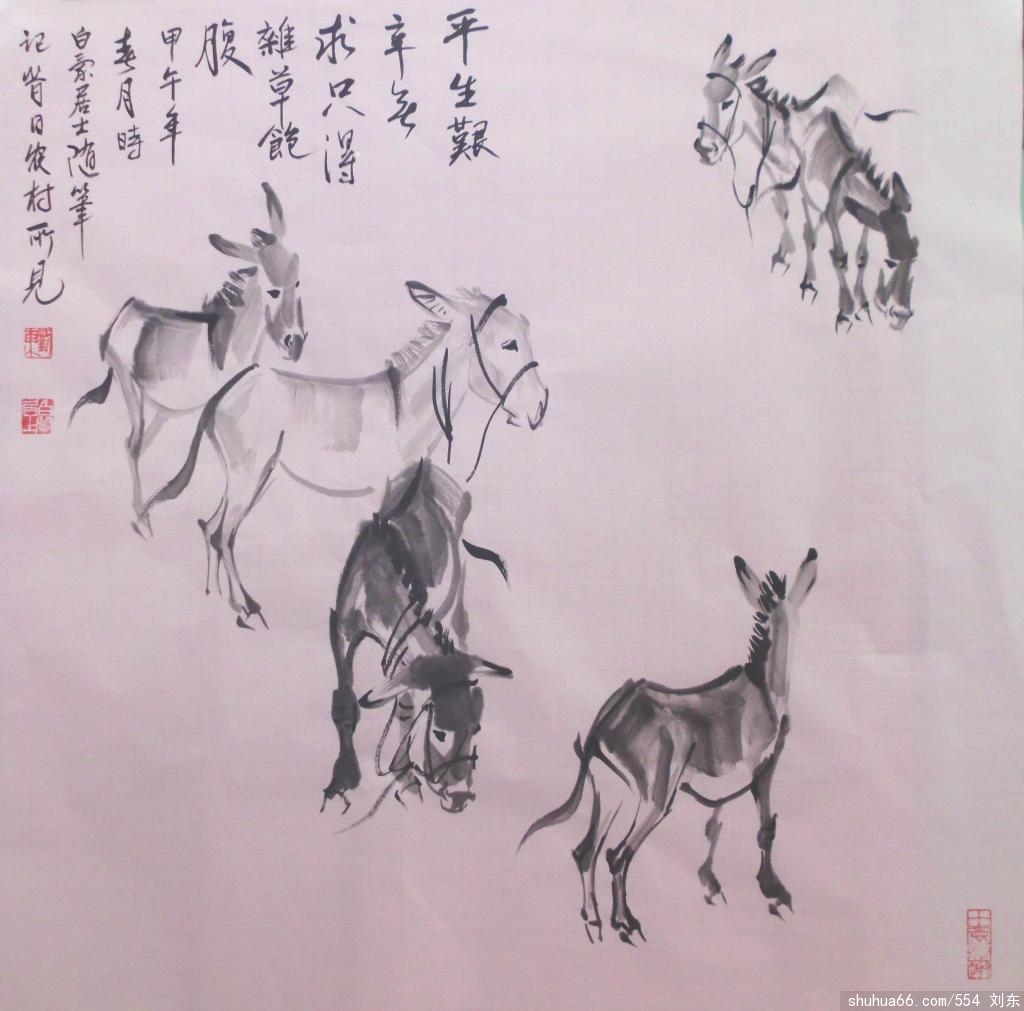 平生艱
辛無
求只得
雜草飽
腹
甲午年
春月時
白雲居士随筆
记昔日农村所見
shuhua66.com/554 刘东